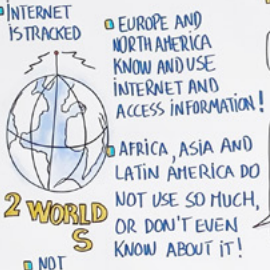 INTERNET
IS TRACKED
EUROPE AND
NORTH AMERICA
KNOW AND USE
INTERNET AND
ACCESS INFORMATION!
AFRICA, ASIA AND
LATIN AMERICA DO
NOT USE SO MUCH,
OR DON'T EVEN
KNOW ABOUT IT!
2 WORLD
S
NOT